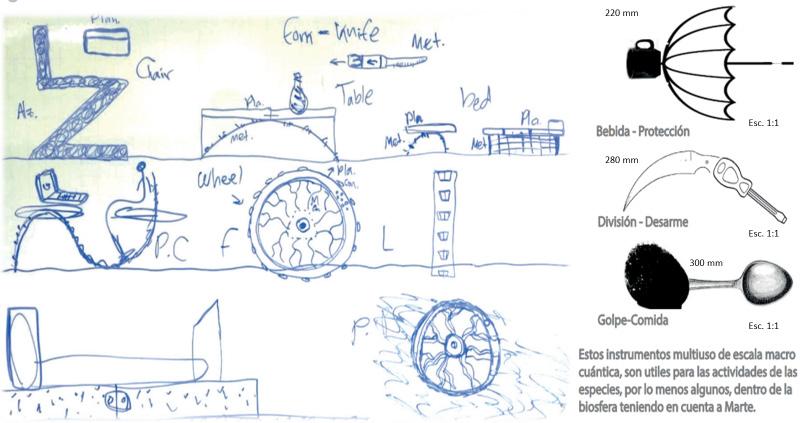 Plan.
Com - Knife
Met.
Chair
Table
bed
Pla.
Pla.
Pla.
Met.
Met.
Met.
Wheel
Pla.
P.C
F
L
P.
220 mm
Bebida - Protección
Esc. 1:1
280 mm
División - Desarme
Esc. 1:1
300 mm
Golpe-Comida
Esc. 1:1
Estos instrumentos multiuso de escala macro
cuántica, son utiles para las actividades de las
especies, por lo menos algunos, dentro de la
biosfera teniendo en cuenta a Marte.